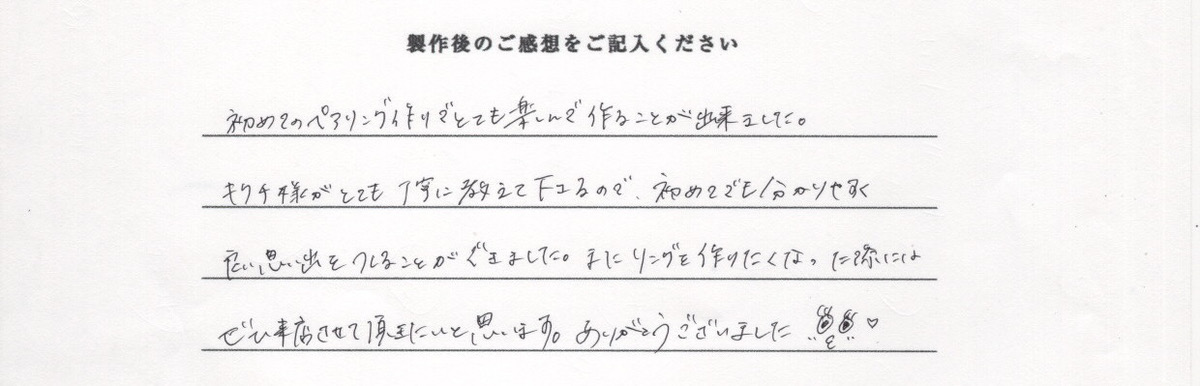 製作後のご感想をご記入ください
初めてのペアリング作りでとても楽しんで作ることが出来ました。
キクチ様がとても丁寧に教えて下さるので、初めてでも分かりやすく
良い思い出をつくることができました。またリングを作りたくなった際には
ぜひ来店させて頂きたいと思います。ありがとうございました ♡